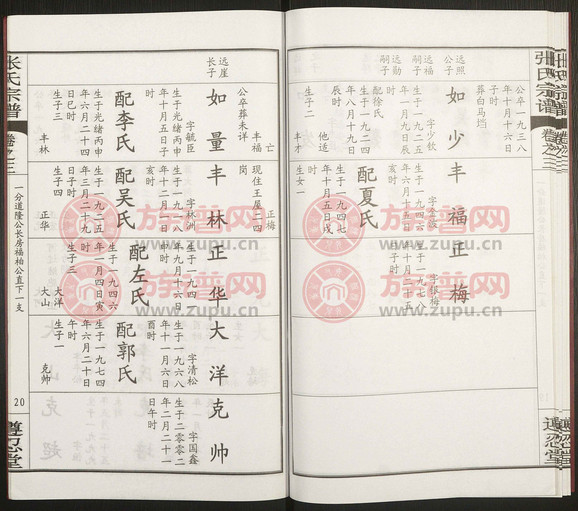 张氏宗谱
卷之三
遵忍堂
选照
公子
如少
字少钦
年一月九日辰
时
选福
选勋
嗣子
配徐氏
生于一九二四
年八月十九日
辰时
生子二
他适
公卒一九三八
年十月十六日
子时
葬白马垱
丰福
生于一九四六
年六月十五日
亥时
配夏氏
生于一九四七
年十月五日戌
时
生女一
正梅
字银梅
生于一九七八
年十月二十五
卯子时
丰才
丰福
亡
现住王屋二四
岗
正梅
张氏宗谱
卷之三
一分道隆公长房福柏公直下一支
20
遵忍堂
选崖
长子
如量
字毓臣
生于光绪丙申
年十月五日子
时
公卒葬未详
配李氏
生于光绪丙申
年六月二十四
日巳时
生子一
丰林
丰林
字林洲
生于一九一八
年十月十一日
亥时
配吴氏
生于一九二五
年三月二十九
日时
生子四
正华
正华
年九月十六日
时
配左氏
生于一九四六
年一月四日寅
时
生子三
大洋
大山
大洋
字清松
生于一九六八
年十一月六日
酉时
配郭氏
生于一九七四
年六月二十日
午时
生子一
克帅
克帅
字国鑫
生于二零零二
年二月二十一
日午时
族谱网
www.zupu.cn